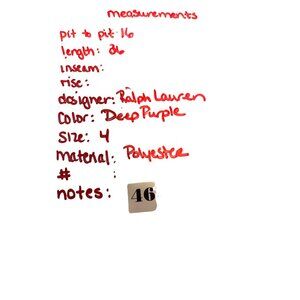 measurements
pit to pit 16
length: 36
inseam:
rise:
designer: Ralph Lauren
Color: Deep Purple
Size: 4
material: Polyester
# :
notes: 46